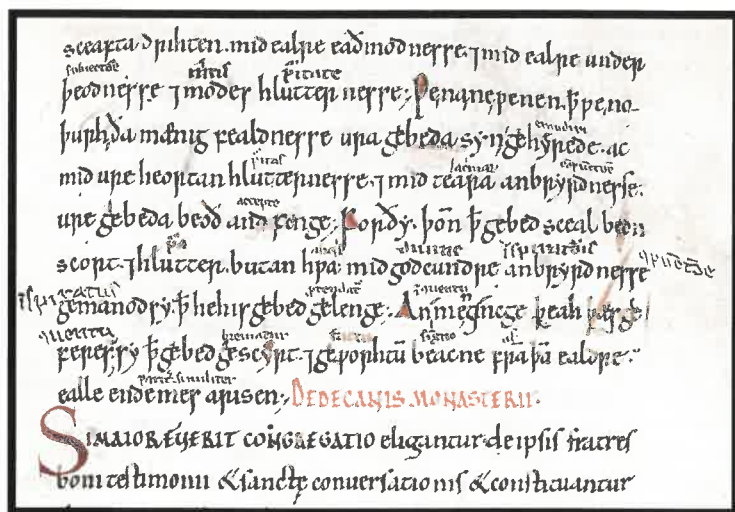 sceafta drihten. mid ealre eadmodnesse. ⁊ mid ealre under
subiectiōe mētis pūritate
þeodnesse ⁊ modes hlutternesse; ꝥ ƿe. no
exaudiri
þurh ða mænig fealdnesse ura gebeda syn gehyrede. ac
mid ure heortan hlutternesse. ⁊ mid teara anbryrdnesse.
accepte
ure gebeda beoð and fenge; Forðy. þoñ ꝥ gebed sceal beon
scort. ⁊ hlutter. butan hƿa mid godcundre anbryrdnesse
gemanod sy. ꝥ he his gebed gelenge. þeah
sy ꝥ gebed gescyrt. ⁊ geƿorhtū beacne frā þā ealdre.
similiter
ealle endemes arisen; DE DECANIS MONASTERII.
SI MAIOR FUERIT CONGREGATIO eligantur de ipsis fratres
boni testimonii & sanctę conuersationis & constituantur